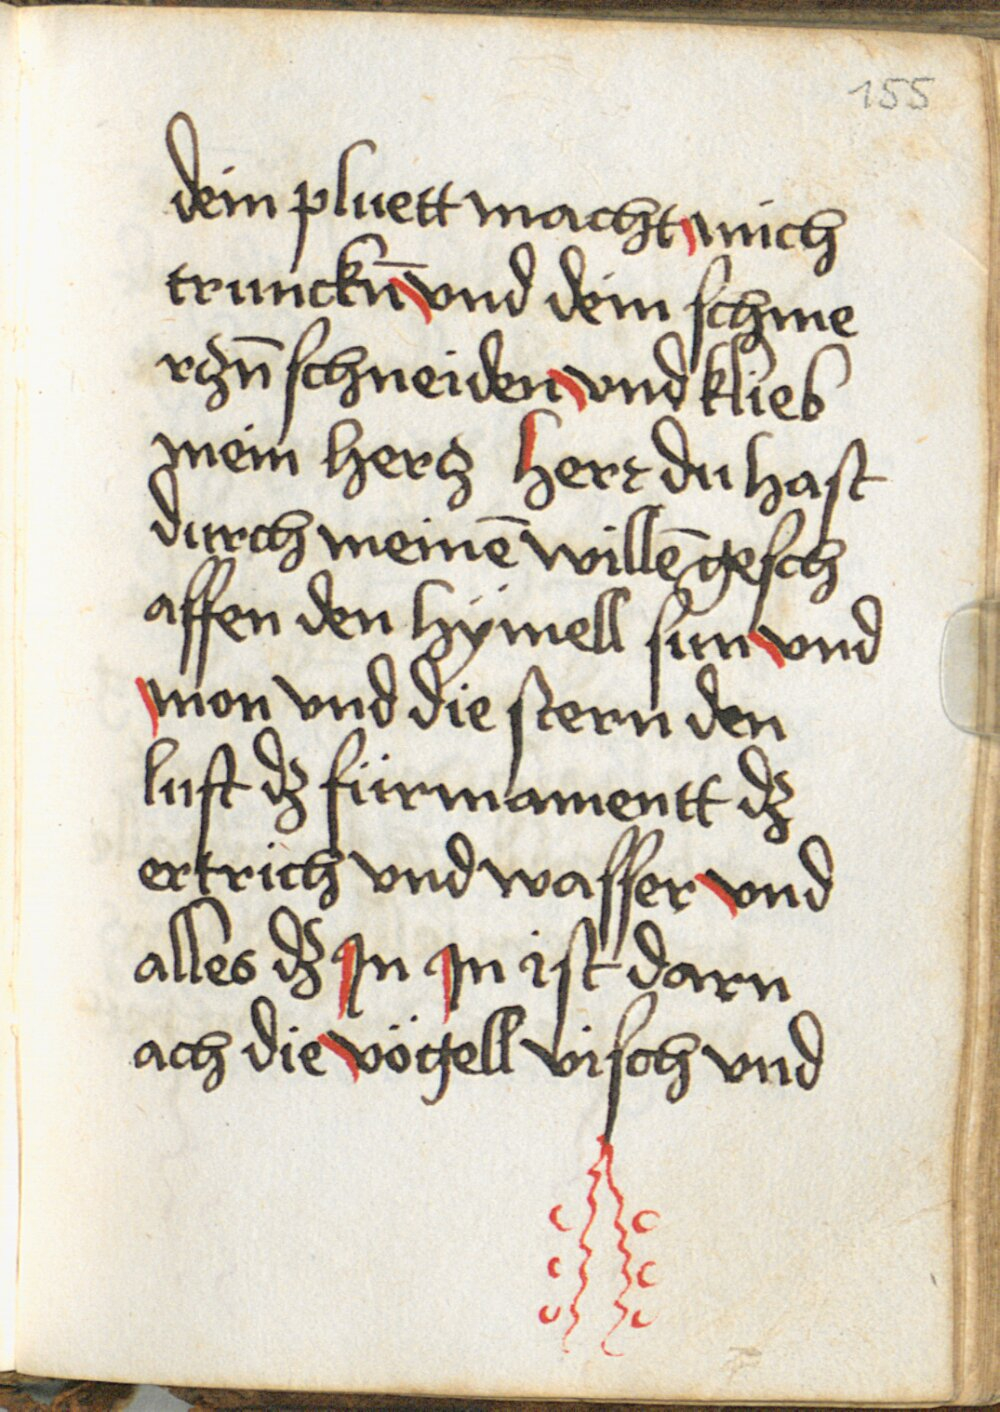 155
dein pluett macht mich
trunckn̄ vnd dein schme
rczn̄ schneiden vnd klieb
mein hercz herr du hast
durch meinē willē gesch
affen den hÿmell sun vnd
mon vnd die stern den
luft dz fürmamentt dz
ertrich vnd wasser vnd
alles dz In In ist darn
ach die vögell visch vnd